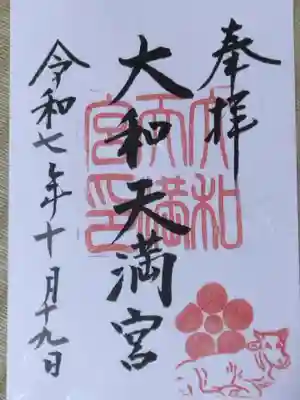 奉拝
大和天満宮
大和天満宮印
令和七年十月十九日